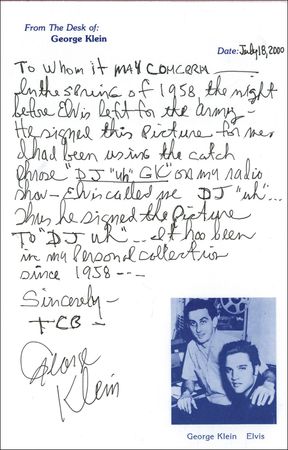 From The Desk of:
George Klein
Date: July 18, 2000
To Whom it MAY CONCERN
In the spring of 1958 the night
before Elvis left for the army -
He signed this picture for me.
I had been using the catch
phrase "DJ "uh" GK" on my radio
show - Elvis called me DJ "uh"...
Thus he signed the picture
To "DJ uh"... It has been
in my Personal collection
since 1958 ---
Sincerely -
TCB -
George
Klein
George Klein Elvis